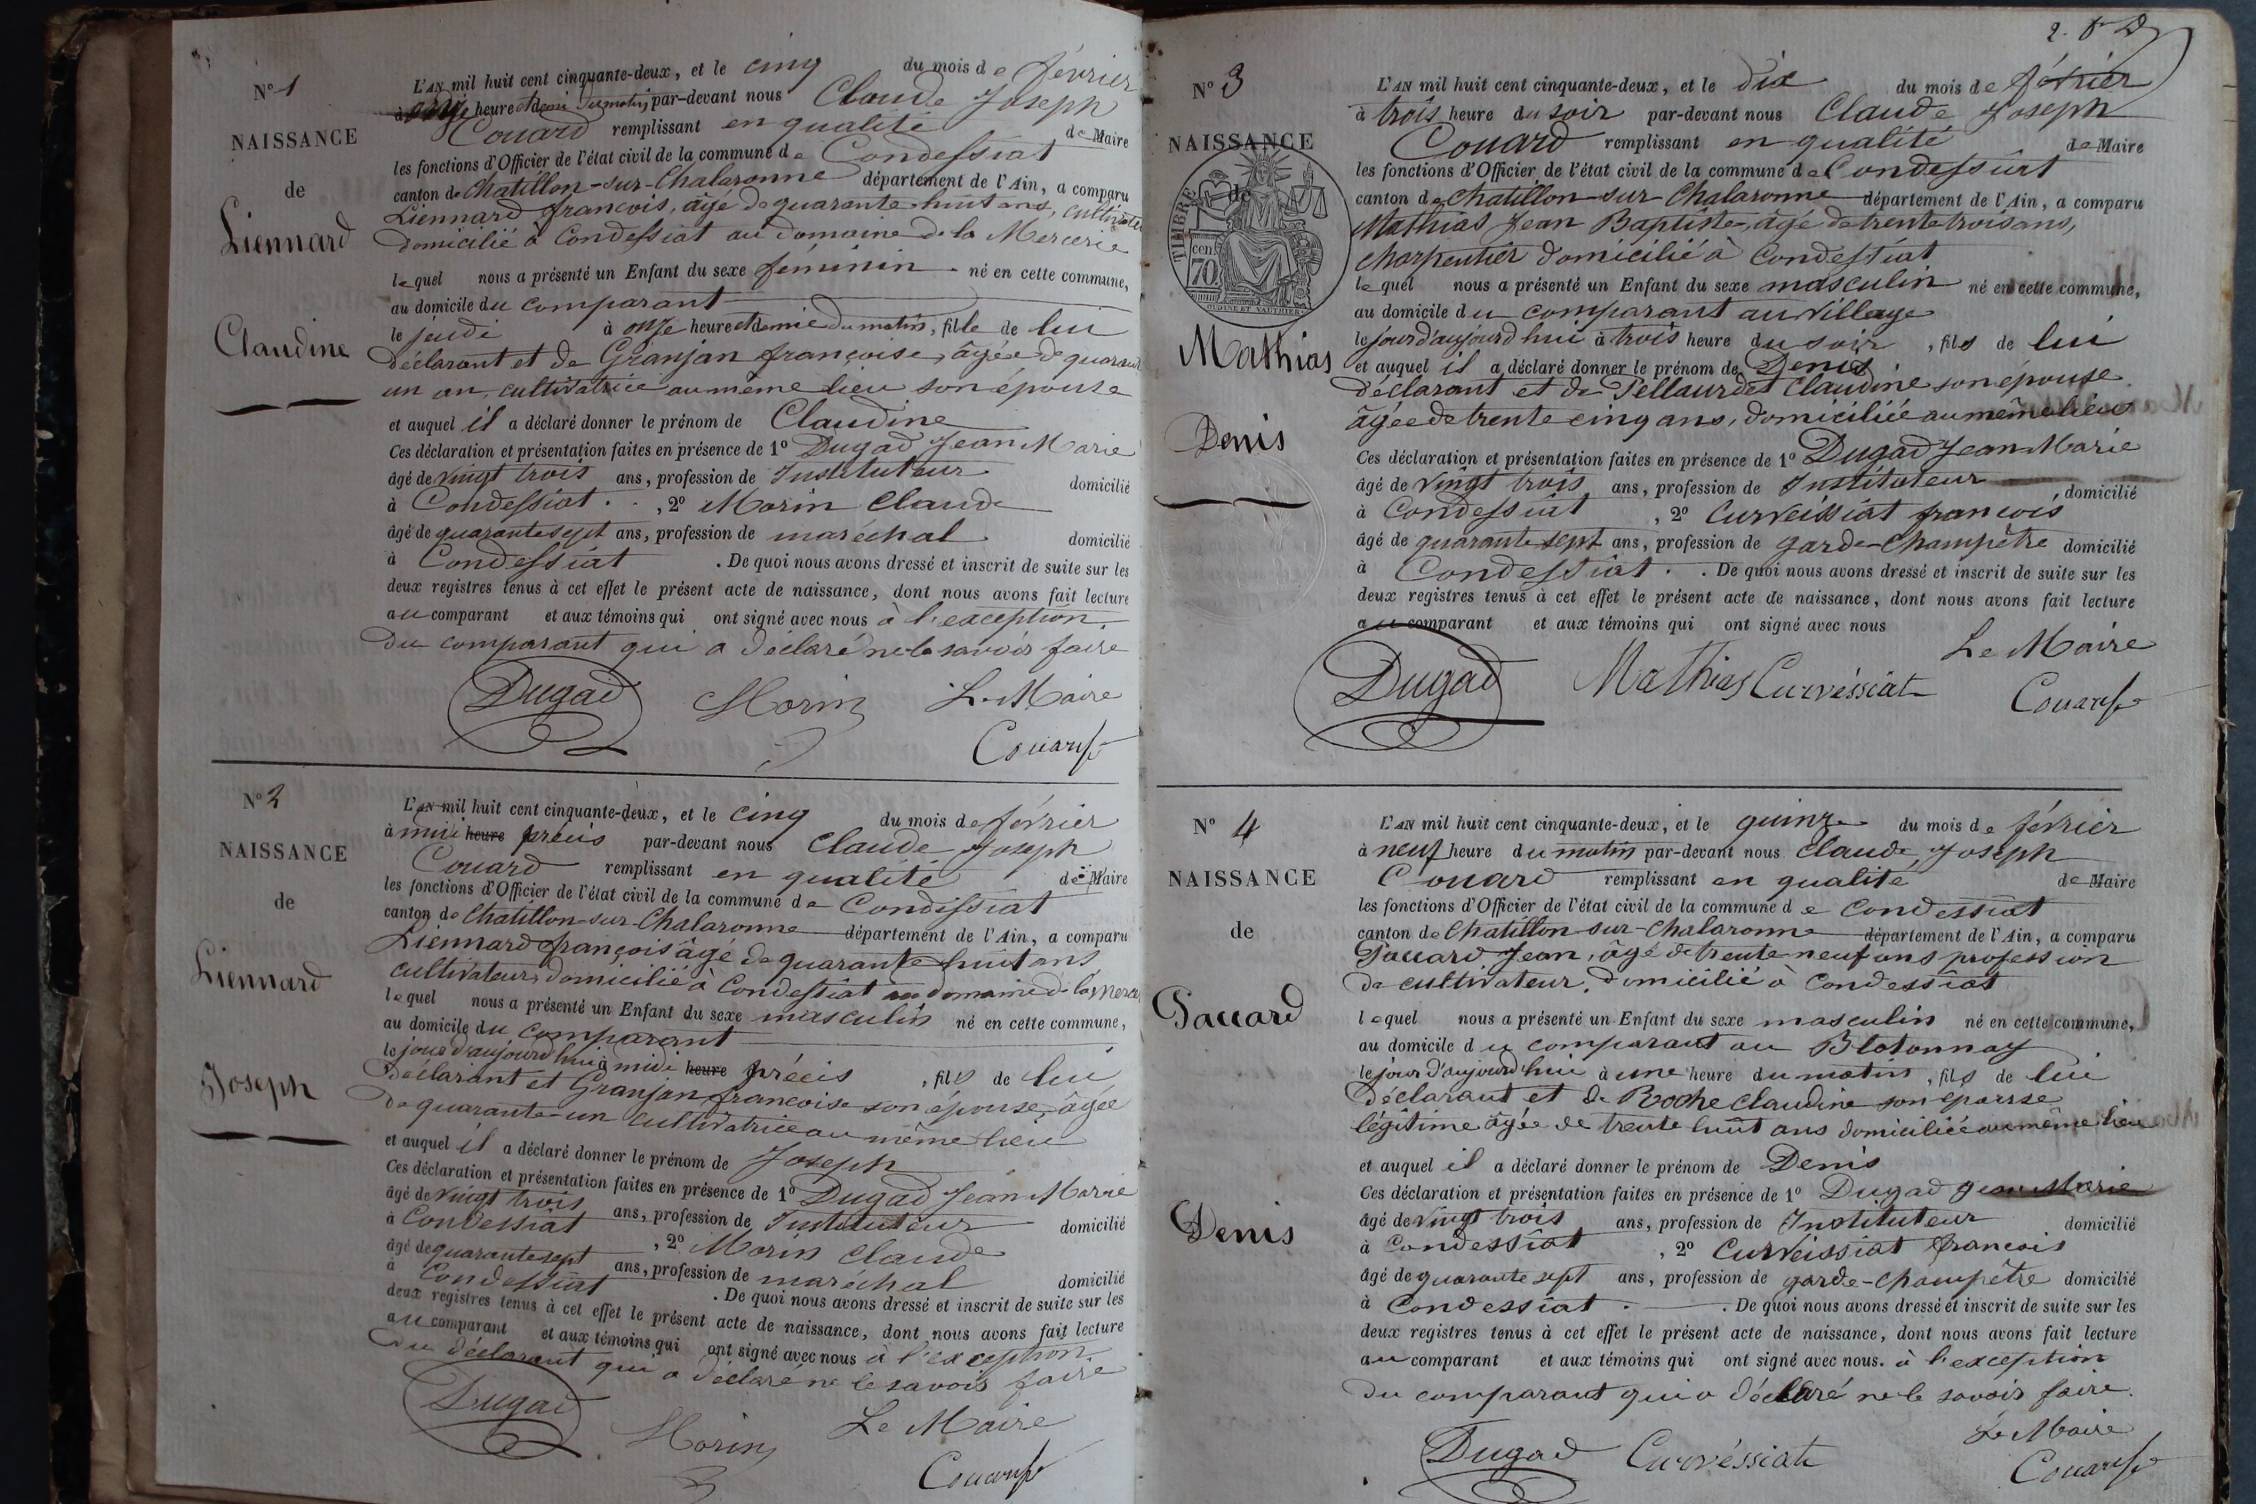 N° 1
NAISSANCE
de
Liennard
Claudine
L'AN mil huit cent cinquante-deux, et le cinq du mois de février
à onze heure et demi du matin par-devant nous Claude Joseph
Couard remplissant en qualité de Maire
les fonctions d'Officier de l'état civil de la commune de Condessiat
canton de Chatillon-sur-Chalaronne département de l'Ain, a comparu
Liennard françois, âgé de quarante huit ans, cultivateur
domicilié à Condessiat au domaine de la Mercerie
lequel nous a présenté un Enfant du sexe féminin né en cette commune,
au domicile du comparant
le jeudi à onze heure et demie du matin, fille de lui
déclarant et de Granjan françoise, âgée de quarante
un an, cultivatrice au même lieu son épouse
et auquel il a déclaré donner le prénom de Claudine
Ces déclaration et présentation faites en présence de 1° Dugad Jean Marie
âgé de vingt trois ans, profession de Instituteur domicilié
à Condessiat . , 2° Morin Claude
âgé de quarante sept ans, profession de maréchal domicilié
à Condessiat . De quoi nous avons dressé et inscrit de suite sur les
deux registres tenus à cet effet le présent acte de naissance, dont nous avons fait lecture
au comparant et aux témoins qui ont signé avec nous à l'exception
du comparant qui a déclaré ne le savoir faire
Dugad Morin Le Maire
Couard
N° 2
NAISSANCE
de
Liennard
Joseph
L'AN mil huit cent cinquante-deux, et le cinq du mois de février
à midi heure précis par-devant nous Claude Joseph
Couard remplissant en qualité de Maire
les fonctions d'Officier de l'état civil de la commune de Condissiat
canton de Chatillon-sur-Chalaronne département de l'Ain, a comparu
Liennard françois âgé de quarante huit ans
cultivateur, domicilié à Condessiat au domaine de la Merce
lequel nous a présenté un Enfant du sexe masculin né en cette commune,
au domicile du comparant
le jour d'aujourd'hui à midi heure précis , fils de lui
Déclarant et Granjan francoise son épouse, âgée
de quarante-un cultivatrice au même lieu
et auquel il a déclaré donner le prénom de Joseph
Ces déclaration et présentation faites en présence de 1° Dugad Jean Marie
âgé de vingt trois ans, profession de Instituteur domicilié
à Condessiat , 2° Morin Claude
âgé de quarante sept ans, profession de maréchal domicilié
à Condessiat . De quoi nous avons dressé et inscrit de suite sur les
deux registres tenus à cet effet le présent acte de naissance, dont nous avons fait lecture
au comparant et aux témoins qui ont signé avec nous à l'exception
du déclarant qui a déclaré ne le savoir faire
Dugad Morin Le Maire
Couard
N° 3
NAISSANCE
de
TIMBRE
cen
70
OUDINE ET VAUTHIER
Mathias
Denis
L'AN mil huit cent cinquante-deux, et le dix du mois de février
à trois heure du soir par-devant nous Claude Joseph
Couard remplissant en qualité de Maire
les fonctions d'Officier de l'état civil de la commune de Condessiat
canton de Chatillon-sur-Chalaronne département de l'Ain, a comparu
Mathias Jean Baptiste, âgé de trente trois ans,
charpentier domicilié à Condessiat
lequel nous a présenté un Enfant du sexe masculin né en cette commune,
au domicile du comparant au Village
le jour d'aujourd'hui à trois heure du soir , fils de lui
et auquel il a déclaré donner le prénom de Denis
déclarant et de Pellaurdet Claudine son épouse
âgée de trente cinq ans, domiciliée au même lieu
Ces déclaration et présentation faites en présence de 1° Dugad Jean Marie
âgé de vingt trois ans, profession de Instituteur domicilié
à Condessiat , 2° Curveissiat francois
âgé de quarante sept ans, profession de garde-champêtre domicilié
à Condessiat . . De quoi nous avons dressé et inscrit de suite sur les
deux registres tenus à cet effet le présent acte de naissance, dont nous avons fait lecture
au comparant et aux témoins qui ont signé avec nous
Dugad Mathias Curvéssiat Le Maire
Couard
N° 4
NAISSANCE
de
Paccard
Denis
L'AN mil huit cent cinquante-deux, et le quinze du mois de février
à neuf heure du matin par-devant nous Claude Joseph
Couard remplissant en qualité de Maire
les fonctions d'Officier de l'état civil de la commune de Condessiat
canton de Chatillon-sur-Chalaronne département de l'Ain, a comparu
Paccard Jean, âgé de trente neuf ans profession
de cultivateur, domicilié à Condessiat
lequel nous a présenté un Enfant du sexe masculin né en cette commune,
au domicile du comparant au Blotonnay
le jour d'aujourd'hui à une heure du matin , fils de lui
déclarant et de Roche Claudine son épouse
légitime âgée de trente huit ans domiciliée au même lieu
et auquel il a déclaré donner le prénom de Denis
Ces déclaration et présentation faites en présence de 1° Dugad Jean Marie
âgé de vingt trois ans, profession de Instituteur domicilié
à Condessiat , 2° Curveissiat francois
âgé de quarante sept ans, profession de garde-champêtre domicilié
à Condessiat . . De quoi nous avons dressé et inscrit de suite sur les
deux registres tenus à cet effet le présent acte de naissance, dont nous avons fait lecture
au comparant et aux témoins qui ont signé avec nous. à l'exception
du comparant qui a déclaré ne le savoir faire.
Dugad Curvéssiat Le Maire
Couard